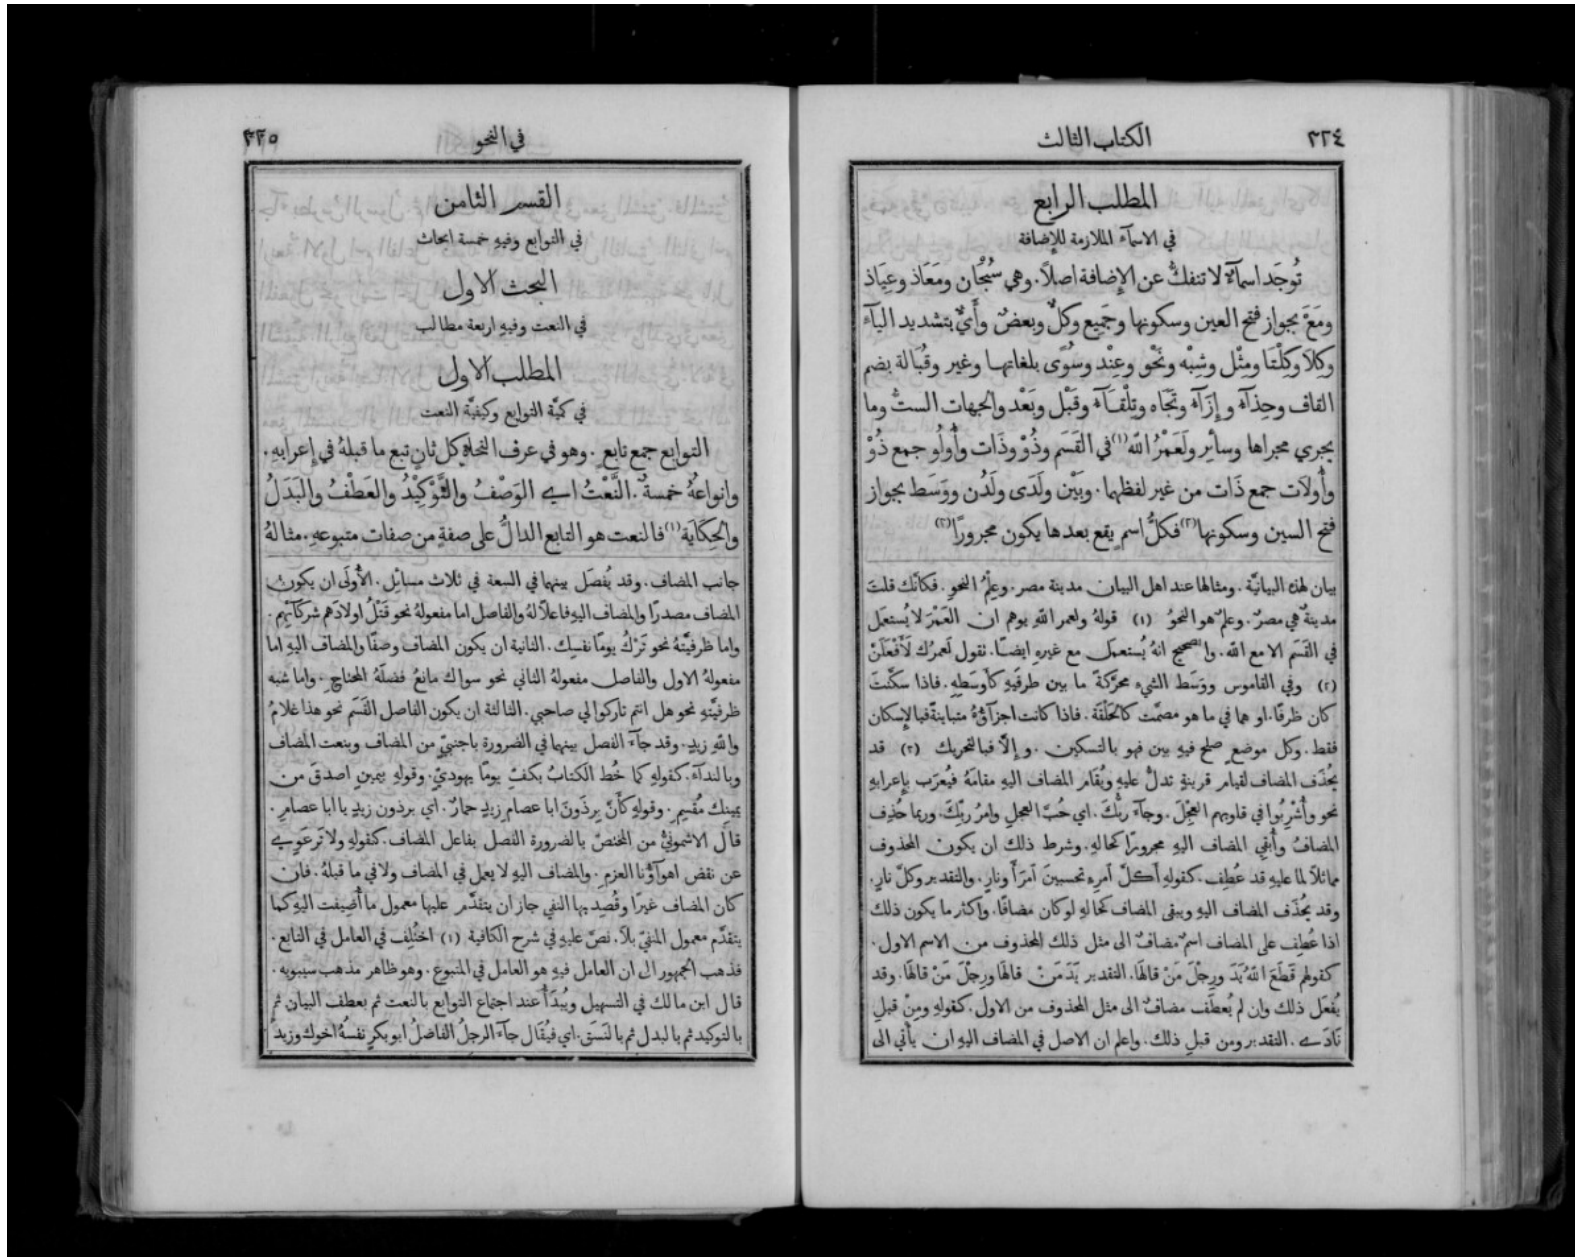 ٣٢٤
الكتاب الثالث
المطلب الرابع
في الاسمآء الملازمة للإضافة
تُوجَد اسمآءٌ لا تنفكُّ عن الإضافة اصلاً. وهي سُبْحَان ومَعَاذ وعِيَاذ
ومَعَ بجواز فتح العين وسكونها وجَمِيع وكلٌّ وبعضٌ وأَيٌّ بتشديد اليآء
وكِلاَ وكِلْتَا ومِثْل وشِبْه ونَحْو وعِنْد وسُوًى بلغاتهـا وغير وقُبَالة بضم
القاف وحِذآءَ وإِزَآءَ وتُجَاه وتِلْقَـآءَ وقَبْل وبَعْد والجهات الستُّ وما
يجري مجراها وسائِر ولَعَمْرُ الله (١) في القَسَم وذُوْ وذَات وأُولُو جمع ذُوْ
وأُولاَت جمع ذَات من غير لفظهما. وبَيْن ولَدَى ولَدُن ووَسَط بجواز
فتح السين وسكونها (٢) فكلُّ اسمٍ يقع بعدها يكون مجرورًا (٣)
بيان لهذه البيانيَّة. ومثالها عند اهل البيان مدينة مصر. وعِلْمُ النحو. فكأَنك قلتَ
مدينةٌ هي مصرُ. وعلمٌ هو النحوُ (١) قولهُ ولعمر اللهِ يوهم ان العَمْرَ لا يُستعمَل
في القَسَم الا مع الله. والصحيح انهُ يُستعمَل مع غيرهِ ايضـًا. نقول لَعمرُك لَأَفْعَلَنَّ
(٢) وفي القاموس ووَسَط الشيء محرَّكةً ما بين طرفَيهِ كأَوسَطِهِ. فاذا سكَّنتَ
كان ظرفًا. او هما في ما هو مصمَّت كالحَلْقَة. فاذا كانت اجزآؤُهُ متباينةً فبالإسكان
فقط. وكل موضعٍ صلح فيهِ بين فهو بالتسكين. وإلاَّ فبالتحريك (٣) قد
يُحذَف المضاف لقيام قرينةٍ تدلُّ عليهِ ويُقَام المضاف اليهِ مقامَهُ فيُعرَب بإِعرابهِ
نحو وأُشْرِبُوا في قلوبهم العِجْلَ. وجآءَ رَبُّكَ. اي حُبَّ العجل وامرُ ربّكَ. وربما حُذِف
المضافُ وأُبقِي المضاف اليهِ مجرورًا كحالهِ. وشرط ذلك ان يكون المحذوف
مماثلاً لما عليهِ قد عُطِف. كقولهِ أَكلَّ ٱمرِءٍ تحسبينَ ٱمرَأً ونارٍ. والتقدير وكلَّ نارٍ.
وقد يُحذَف المضاف اليهِ ويبقى المضاف كحالهِ لو كان مضافًا. واكثر ما يكون ذلك
اذا عُطِف على المضاف اسمٌ مضافٌ الى مثل ذلك المحذوف من الاسم الاول.
كقولهم قَطَعَ اللهُ يَدَ ورِجْلَ مَنْ قالهَا. التقدير يَدَ مَنْ قالهَا ورِجْلَ مَنْ قالهَا. وقد
يُفعَل ذلك وإن لم يُعطَف مضافٌ الى مثل المحذوف من الاول. كقولهِ ومِنْ قبلِ
نَادَى. التقدير ومن قبلِ ذلك. واعلم ان الاصل في المضاف اليهِ ان يأتي الى
في النحو
٣٢٥
القسم الثامن
في التوابع وفيهِ خمسة ابحاث
البحث الاول
في النعت وفيهِ اربعة مطالب
المطلب الاول
في كميَّة التوابع وكيفيَّة النعت
التوابع جمع تابعٍ. وهو في عرف النحاة كل ثانٍ تبع ما قبلهُ في إِعرابهِ.
وانواعهُ خمسةٌ. النَّعْتُ اي الوَصْفُ والتَّوْكِيْدُ والعَطْفُ والبَدَلُ
والحِكَايَة (١) فالنعت هو التابع الدالُّ على صفةٍ من صفات متبوعهِ. مثالهُ
جانب المضاف. وقد يُفصَل بينهما في السعة في ثلاث مسائِل. الأُولَى ان يكون
المضاف مصدرًا والمضاف اليهِ فاعلاً لهُ والفاصل اما مفعولهُ نحو قَتْلُ اولادَهم شركآئِهِم.
واما ظرفيَّتهُ نحو تَرْكُ يومًا نفسِك. الثانية ان يكون المضاف وصفًا والمضاف اليهِ اما
مفعولهُ الاول والفاصل مفعولهُ الثاني نحو سواك مانعُ فضلَهُ المحتاجِ. واما شبه
ظرفيَّتهِ نحو هل انتم تاركوا لي صاحبي. الثالثة ان يكون الفاصل القَسَم نحو هذا غلامُ
واللهِ زيدٍ. وقد جآءَ الفصل بينهما في الضرورة باجنبيٍّ من المضاف وبنعت المضاف
وبالندآء. كقولهِ كما خُط الكتابُ بكفِّ يومًا يهوديٍّ. وقولهِ بيمينِ اصدقَ من
يمينِك مُقسِمٍ. وقولهِ كأَنَّ برذَونَ ابا عصامٍ زيدٍ حمارٌ. اي برذون زيدٍ يا ابا عصامٍ.
قال الاشمونيُّ من المختصّ بالضرورة الفصل بفاعل المضاف. كقولهِ ولا تَرعَوِي
عن نقض اهوآؤُنا العزمِ. والمضاف اليهِ لا يعمل في المضاف ولا في ما قبلهُ. فان
كان المضاف غيرًا وقُصِد بها النفي جاز ان يتقدَّم عليها معمول ما أُضِيفت اليهِ كما
يتقدَّم معمول المنفيّ بلاَ. نصَّ عليهِ في شرح الكافية (١) اختُلِف في العامل في التابع.
فذهب الجمهور الى ان العامل فيهِ هو العامل في المتبوع. وهو ظاهر مذهب سيبويه.
قال ابن مالك في التسهيل ويُبدَأُ عند اجتماع التوابع بالنعت ثم بعطف البيان ثم
بالتوكيد ثم بالبدل ثم بالنَسَق. اي فيُقَال جآءَ الرجلُ الفاضلُ ابو بكرٍ نفسُهُ اخوك وزيدٌ